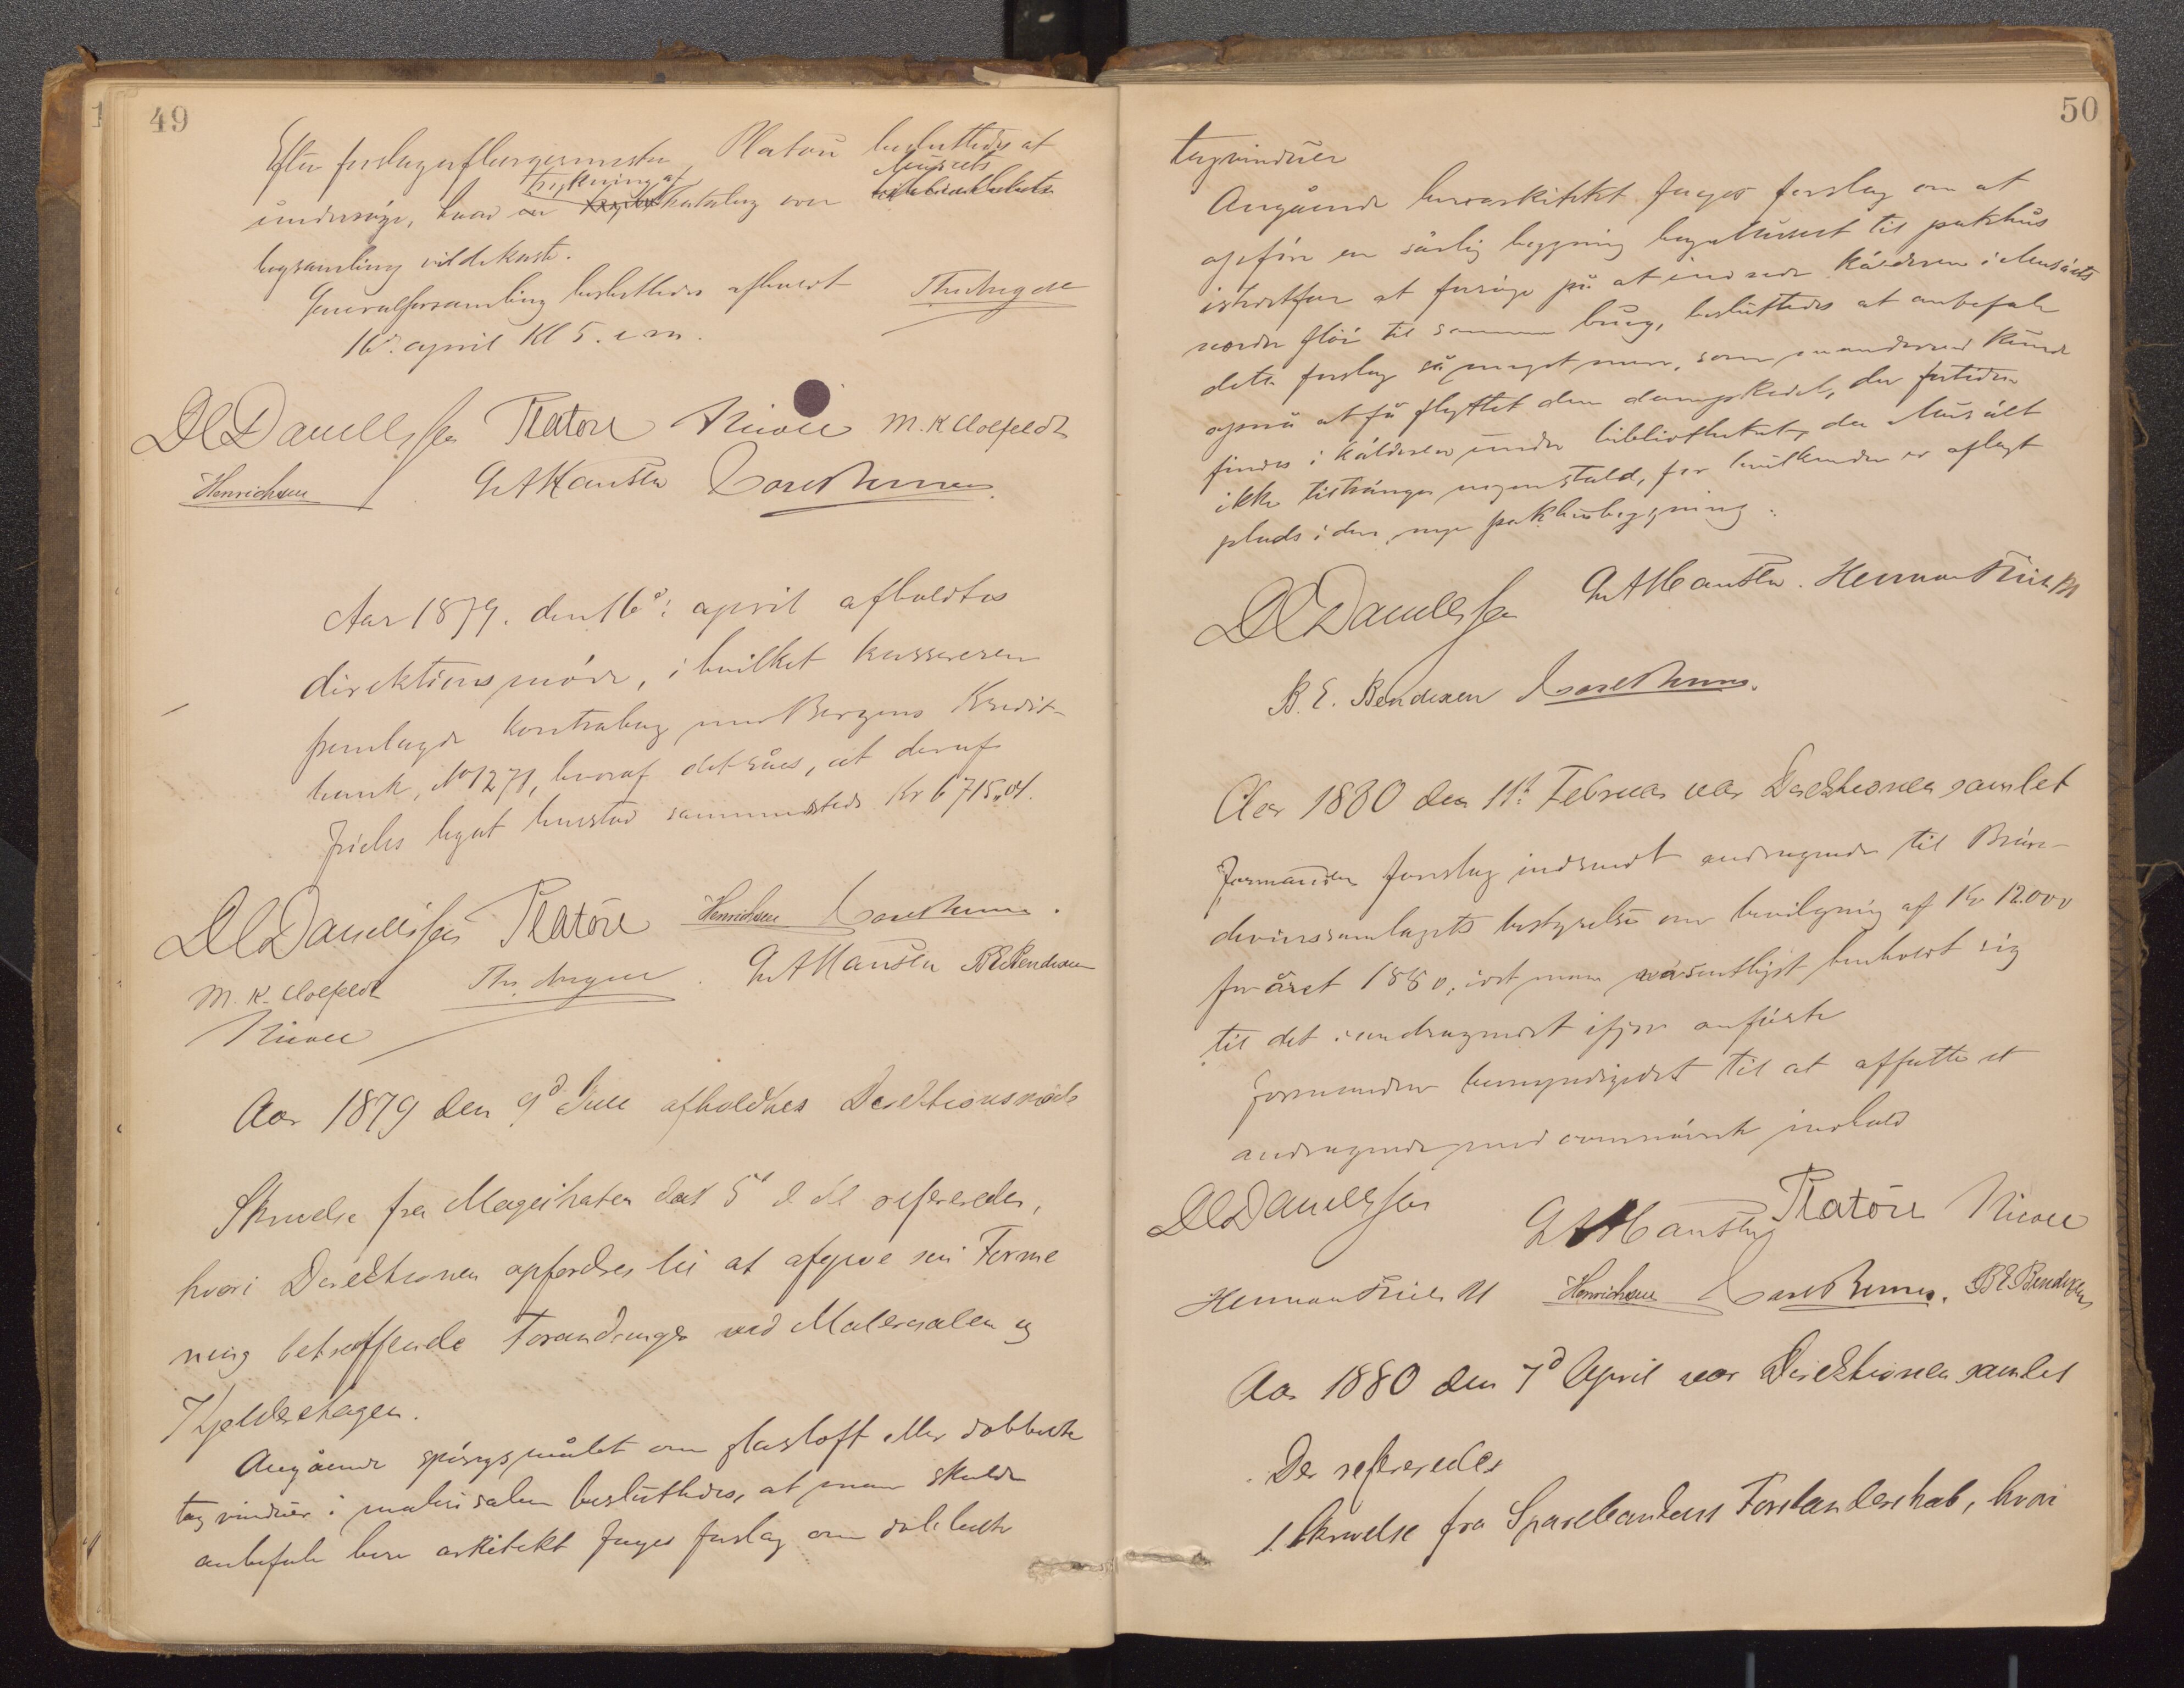 49
Efter forslag af borgermester Platou besluttedes at
undersøge, hvad en trykning af katalog over Musæets
bogsamling vilde koste.
Generalforsamling besluttedes afholdt
16de april Kl 5. e.m.
DC Danielssen Platou Nicou M. K. Clolfeldt
Henrichsen G A Hansen
Aar 1879. den 16d: april afholdtes
direktionsmøde, i hvilket kassereren
fremlagde kontrabog med Bergens Kredit-
bank, No 1271, hvoraf det såes, at deraf
Frieles legat henstod sammesteds Kr 6715,04.
DC Danielssen Platou Henrichsen
M. K. Clolfeldt G A Hansen B E Bendixen
Aar 1879 den 9d Juli afholdtes Direktionsmøde
Skrivelse fra Magistraten dat 5d d M refereredes,
hvori Direktionen opfordres til at afgive sin Forme
ning betreffende Forandringer ved Malersalen og
Kjelderetagen.
Angående spörgsmålet om glasloft eller dobbelte
tagvinduer i malerisalen besluttedes, at man skulde
anbefale herr arkitekt forslag om dobbelte
50
tagvinduer
Angående herr arkitekt forslag om at
opføre en særlig bygning bag Musæet til pakhus
istedetfor at forsøge på at indrede Kælderen i Musæets
nordre fløi til samme brug, besluttedes at anbefale
dette forslag så meget mere, som man derved Kunde
opnå at få flyttet den dampkedel, der fortiden
findes i kælderen under bibliotheket, da Musæet
ikke tiltrænger nogen stald, for hvilken der er aflagt
plads i den nye pakhusbygning.
DC Danielssen G A Hansen. Herman Friele
B. E. Bendixen
Aar 1880 den 11te Februar var Direktionen samlet
Formanden foreslog indsendt andragende til Brænde-
vinssamlagets bestyrelse om bevilgning af Kr 12.000
for året 1880, idet man væsentligst henholdt sig
til det i andragendet ifjor anførte
Formanden bemyndigedes til at affatte et
andragende med ovennævnte indhold
DC Danielssen G A Hansen Platou Nicou
Herman Friele Henrichsen B E Bendixen
Aar 1880 den 7d April var Direktionen samlet
Der refereredes
1. Skrivelse fra Sparebankens Forstanderskab, hvori